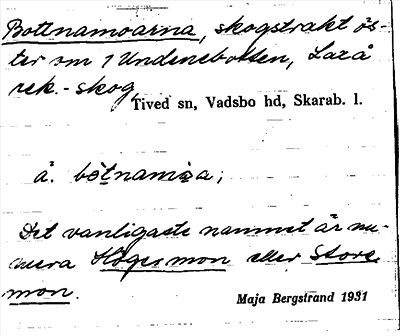 Bottnamoarna, skogstrakt ös-
ter om 1 Undenebotten, Laxå
rek.-skog,
Tived sn, Vadsbo hd, Skarab. l.
å. bòtnamɷa;
Det vanligaste namnet är nu-
mera Högermon eller Store
mon.
Maja Bergstrand 1931